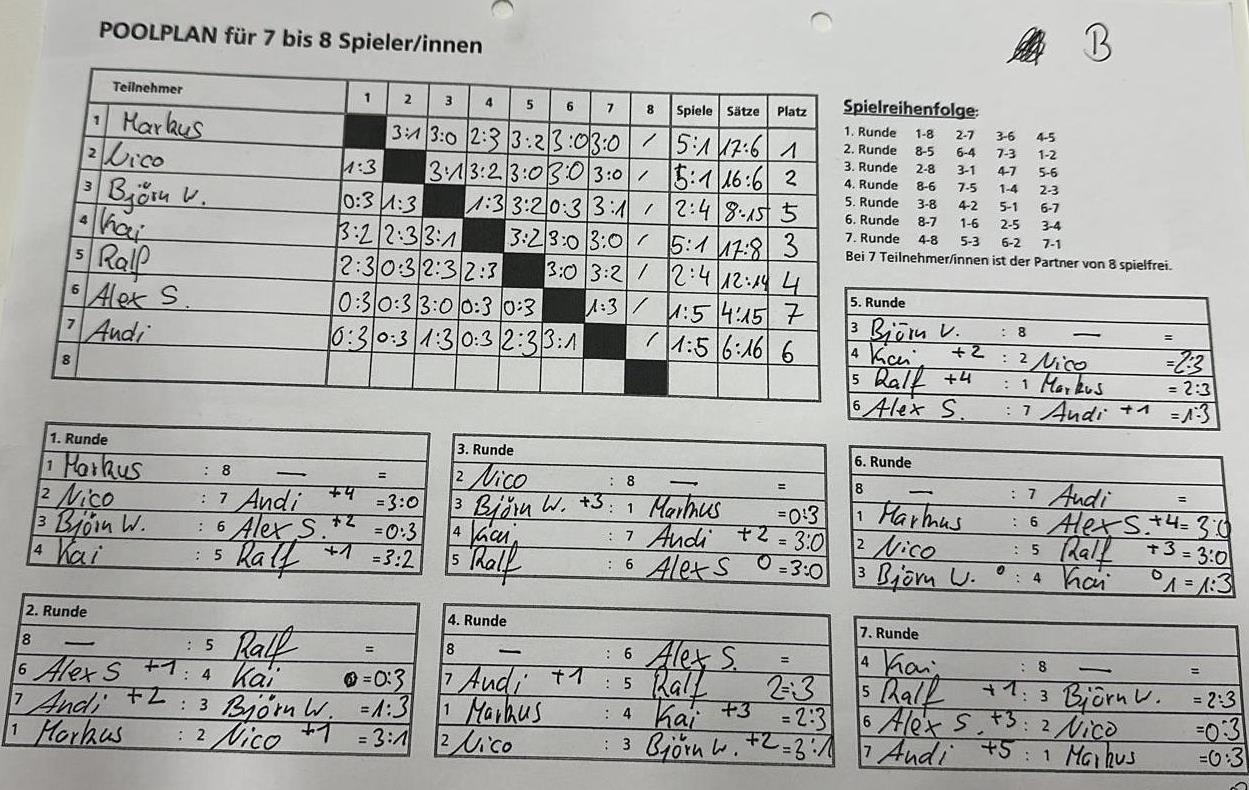 POOLPLAN für 7 bis 8 Spieler/innen
B
Teilnehmer 1 2 3 4 5 6 7 8 Spiele Sätze Platz
1 Markus 3:1 3:0 2:3 3:2 3:0 3:0 / 5:1 17:6 1
2 Nico 1:3 3:1 3:2 3:0 3:0 3:0 / 5:1 16:6 2
3 Björn W. 0:3 1:3 1:3 3:2 0:3 3:1 / 2:4 8:15 5
4 Kai 3:2 2:3 3:1 3:2 3:0 3:0 / 5:1 17:8 3
5 Ralf 2:3 0:3 2:3 2:3 3:0 3:2 / 2:4 12:14 4
6 Alex S. 0:3 0:3 3:0 0:3 0:3 1:3 / 1:5 4:15 7
7 Andi 0:3 0:3 1:3 0:3 2:3 3:1 / 1:5 6:16 6
8
Spielreihenfolge:
1. Runde 1-8 2-7 3-6 4-5
2. Runde 8-5 6-4 7-3 1-2
3. Runde 2-8 3-1 4-7 5-6
4. Runde 8-6 7-5 1-4 2-3
5. Runde 3-8 4-2 5-1 6-7
6. Runde 8-7 1-6 2-5 3-4
7. Runde 4-8 5-3 6-2 7-1
Bei 7 Teilnehmer/innen ist der Partner von 8 spielfrei.
1. Runde
1 Markus : 8 — =
2 Nico : 7 Andi +4 =3:0
3 Björn W. : 6 Alex S. +2 =0:3
4 Kai : 5 Ralf +1 =3:2
2. Runde
8 — : 5 Ralf =
6 Alex S +1 : 4 Kai =0:3
7 Andi +2 : 3 Björn W. =1:3
1 Markus : 2 Nico +1 =3:1
3. Runde
2 Nico : 8 — =
3 Björn W. +3 : 1 Markus =0:3
4 Kai : 7 Andi +2 =3:0
5 Ralf : 6 Alex S 0 =3:0
4. Runde
8 — : 6 Alex S. =
7 Andi +1 : 5 Ralf 2=:3
1 Markus : 4 Kai +3 =2:3
2 Nico : 3 Björn W. +2 =3:1
5. Runde
3 Björn W. : 8 — =
4 Kai +2 : 2 Nico =2:3
5 Ralf +4 : 1 Markus =2:3
6 Alex S. : 7 Andi +1 =1:3
6. Runde
8 — : 7 Andi =
1 Markus : 6 Alex S. +4 =3:0
2 Nico : 5 Ralf +3 =3:0
3 Björn W. 0 : 4 Kai 0 1 =1:3
7. Runde
4 Kai : 8 — =
5 Ralf +1 : 3 Björn W. =2:3
6 Alex S. +3 : 2 Nico =0:3
7 Andi +5 : 1 Markus =0:3